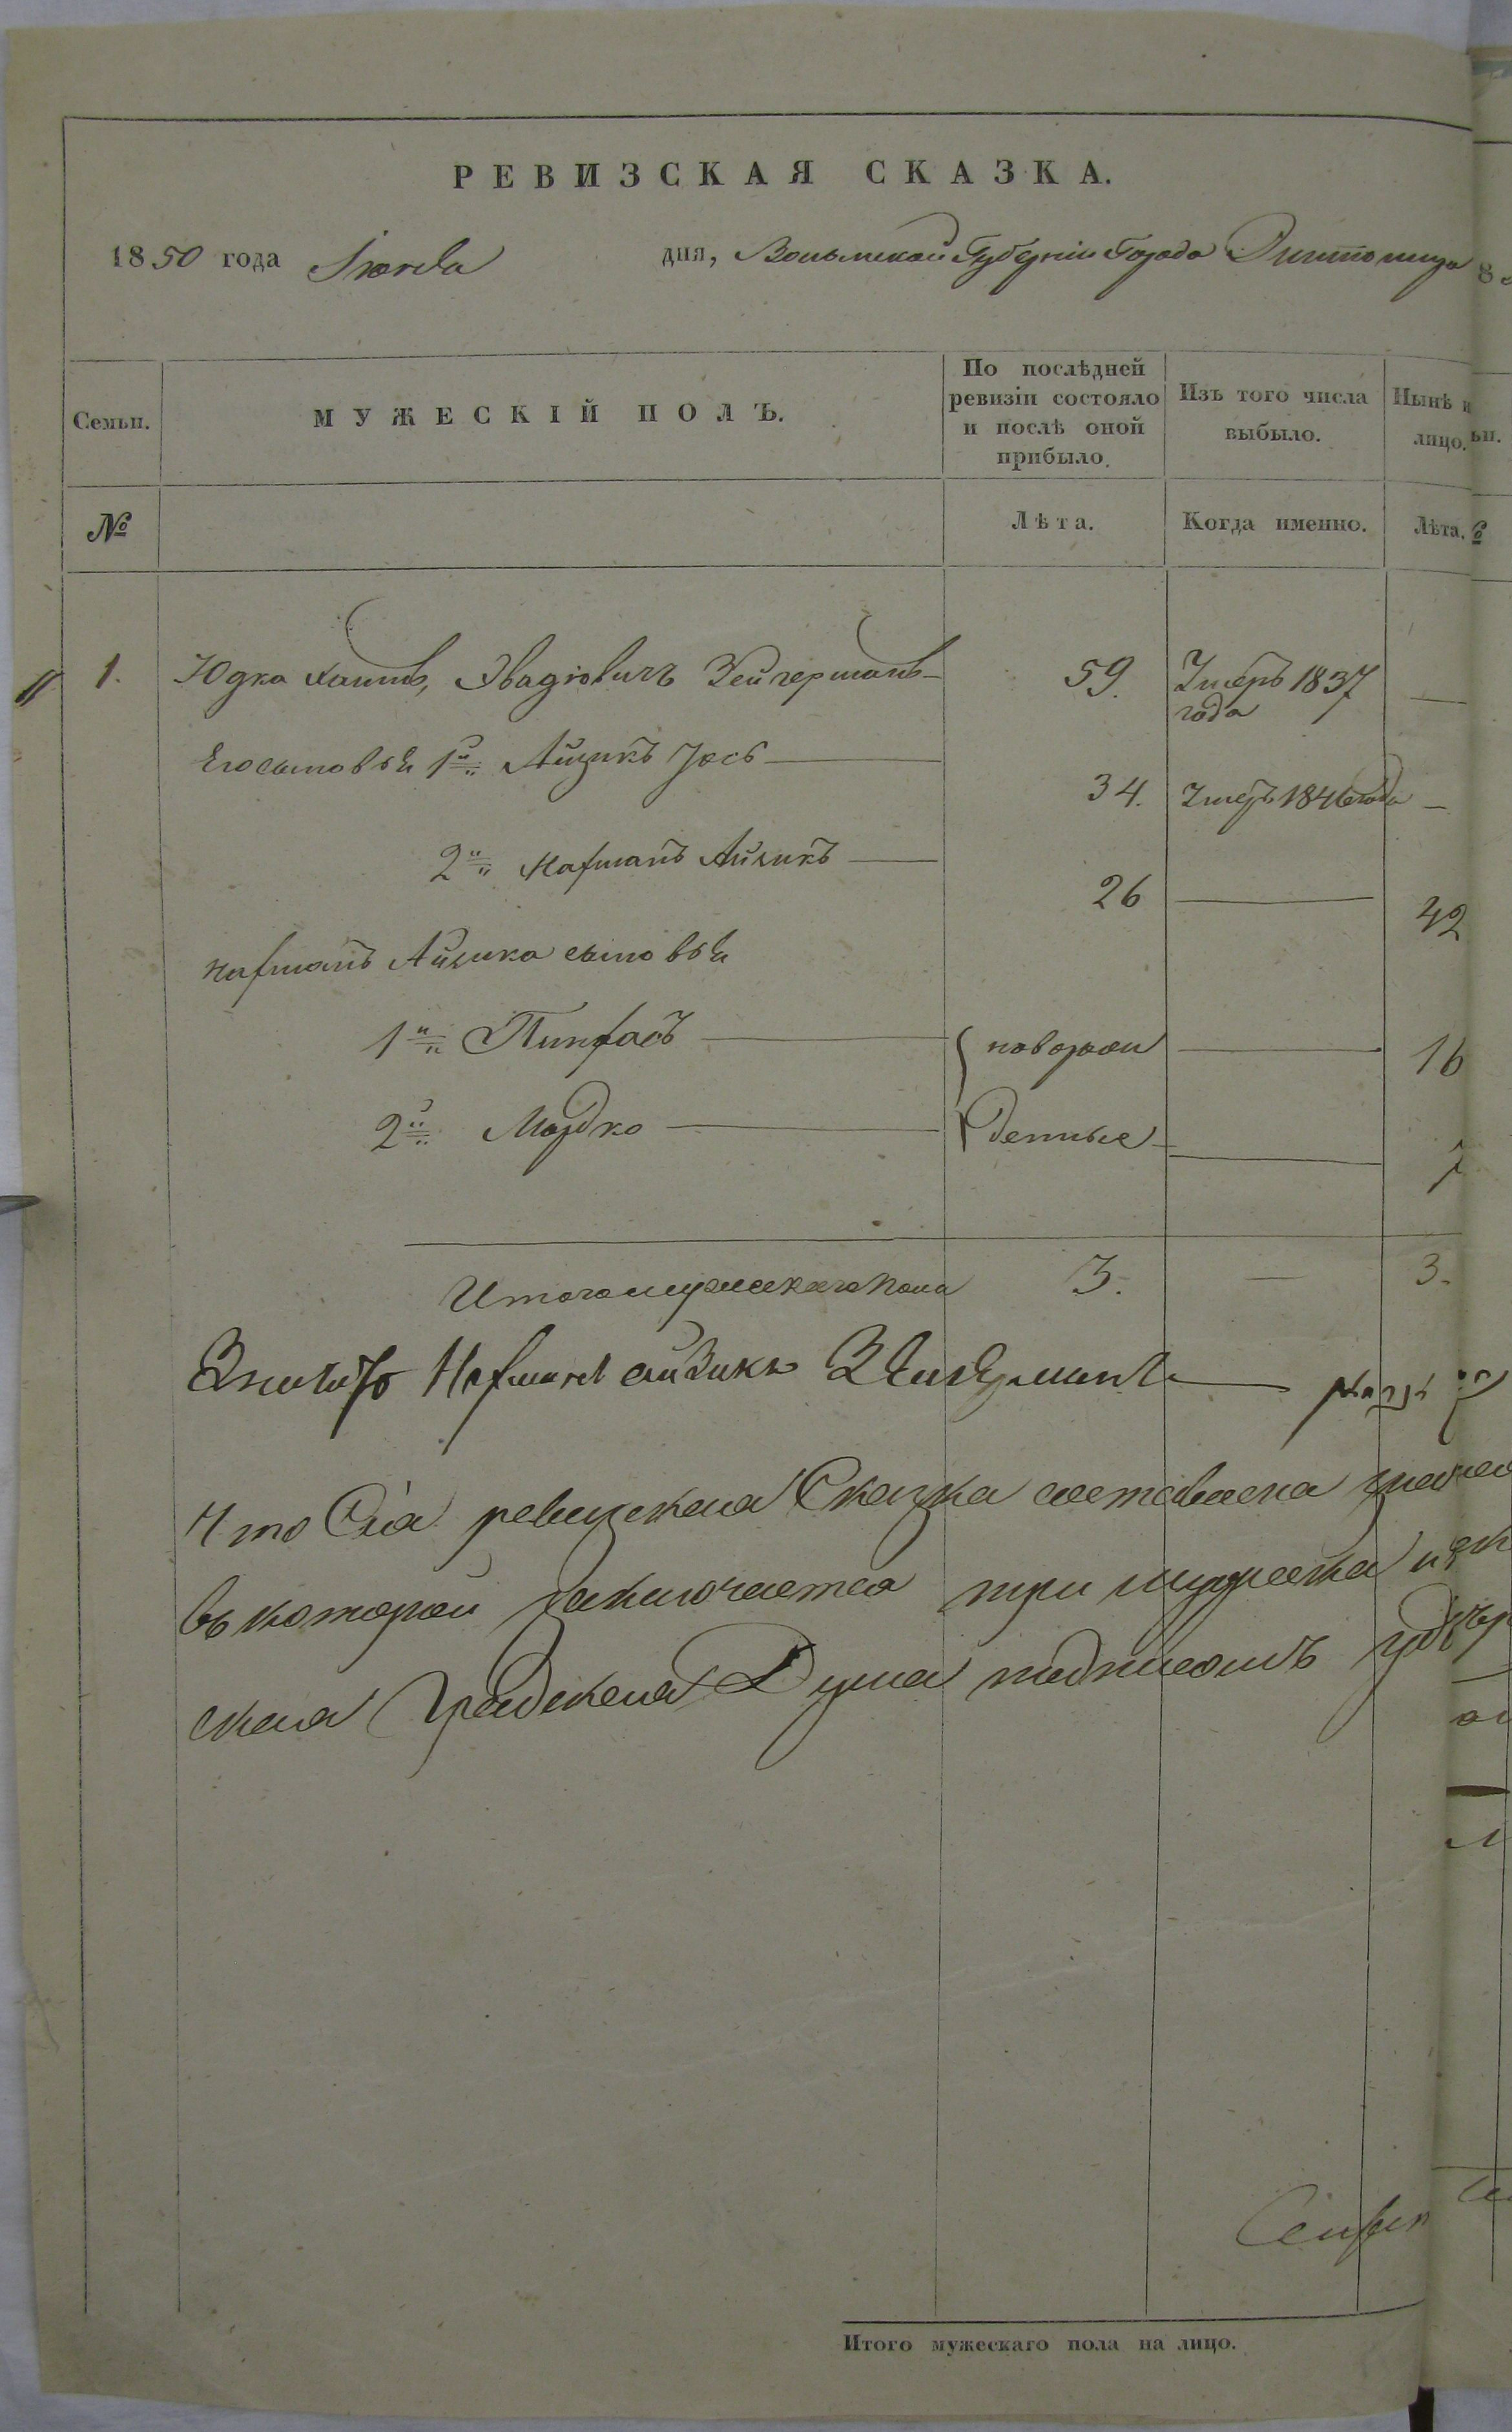 РЕВИЗСКАЯ СКАЗКА.
1850 года Іюля дня, Волынской Губерніи Города Житомира
Семьи. МУЖЕСКІЙ ПОЛЪ. По послѣдней ревизіи состояло и послѣ оной прибыло. Изъ того числа выбыло. Нынѣ на лицо.
№ Лѣта. Когда именно. Лѣта.
1. Юдка Хаимъ, Овадіовичъ Зейгерманъ 59. Умеръ 1837 года —
Его сыновья 1й Айзикъ Іось 34. Умеръ 1846 года —
2й Нафманъ Айзикъ 26 — 42
Нафманъ Айзика сыновья
1й Пинхасъ новорож — 16
2й Мордко денные — 7
Итого мужескаго пола 3. — 3.
Нафманъ айзикъ
Что Сія ревизская Сказка составлена
въ которой заключается три мужеска
ская Градская Дума подписомъ
Итого мужескаго пола на лицо.